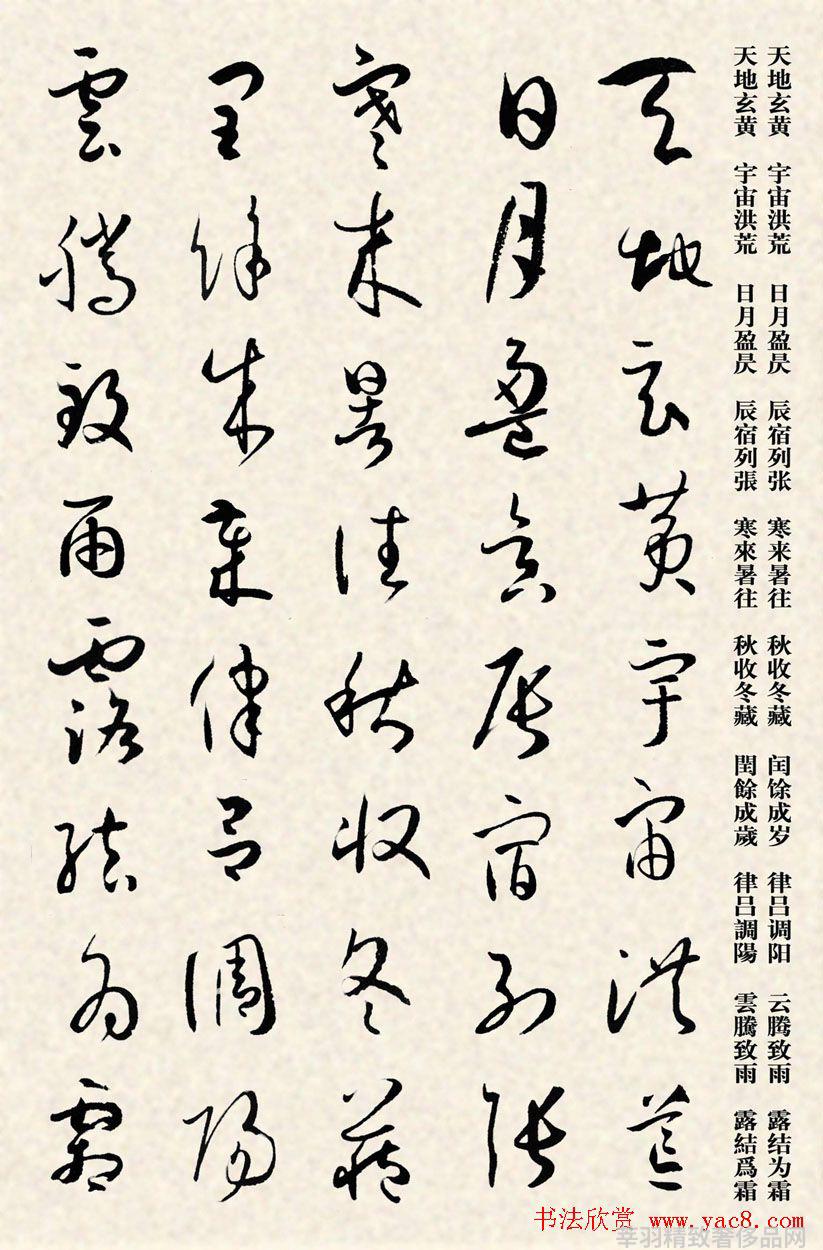 天地玄黄 宇宙洪荒 日月盈昃 辰宿列张 寒来暑往 秋收冬藏 闰馀成岁 律吕调阳 云腾致雨 露结为霜
天地玄黄 宇宙洪荒 日月盈昃 辰宿列張 寒來暑往 秋收冬藏 閏餘成歲 律吕調陽 雲騰致雨 露結爲霜
天地玄黄宇宙洪荒
日月盈昃辰宿列張
寒来暑往秋收冬藏
閏餘成歲律吕調陽
雲騰致雨露結为霜
书法欣赏 www.yac8.com
莘羽精致著侈品网